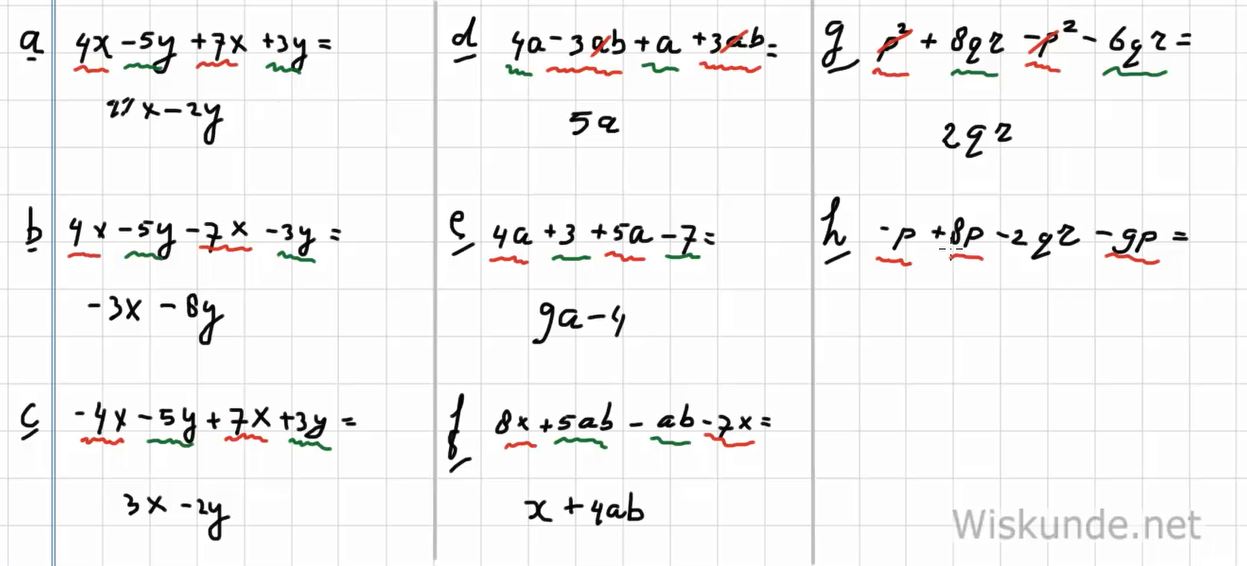 a 4x - 5y + 7x + 3y =
11x - 2y
b 4x - 5y - 7x - 3y =
-3x - 8y
c -4x - 5y + 7x + 3y =
3x - 2y
d 4a - 3ab + a + 3ab =
5a
e 4a + 3 + 5a - 7 =
9a - 4
f 8x + 5ab - ab - 7x =
x + 4ab
g p² + 8qr - p² - 6qr =
2qr
h -p + 8p - 2qr - 9p =
Wiskunde.net